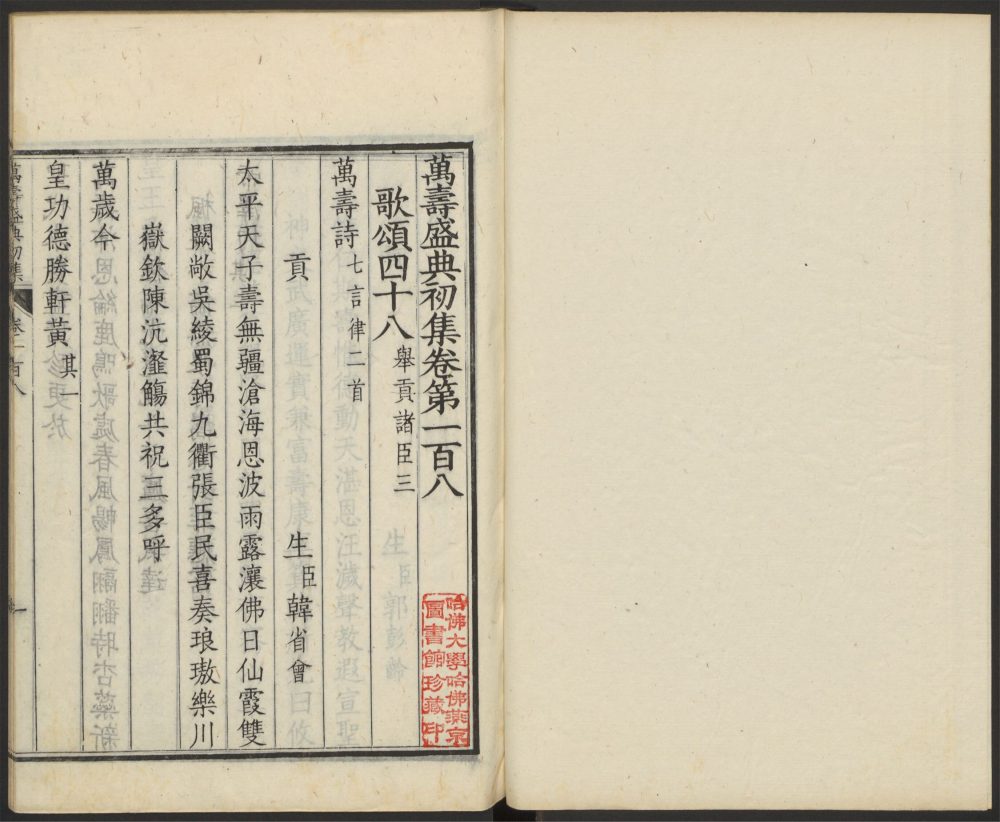 萬壽盛典初集卷第一百八
歌頌四十八 舉貢諸臣三
萬壽詩 七言律二首
貢 生臣韓省會
太平天子壽無疆滄海恩波雨露瀼佛日仙霞雙
闕敞吳綾蜀錦九衢張臣民喜奏琅璈樂川
嶽欽陳沆瀣觴共祝三多呼
萬歲今
皇功德勝軒黃 其一
萬壽盛典初集 卷一百八
哈佛大學哈佛燕京
圖書館珍藏印